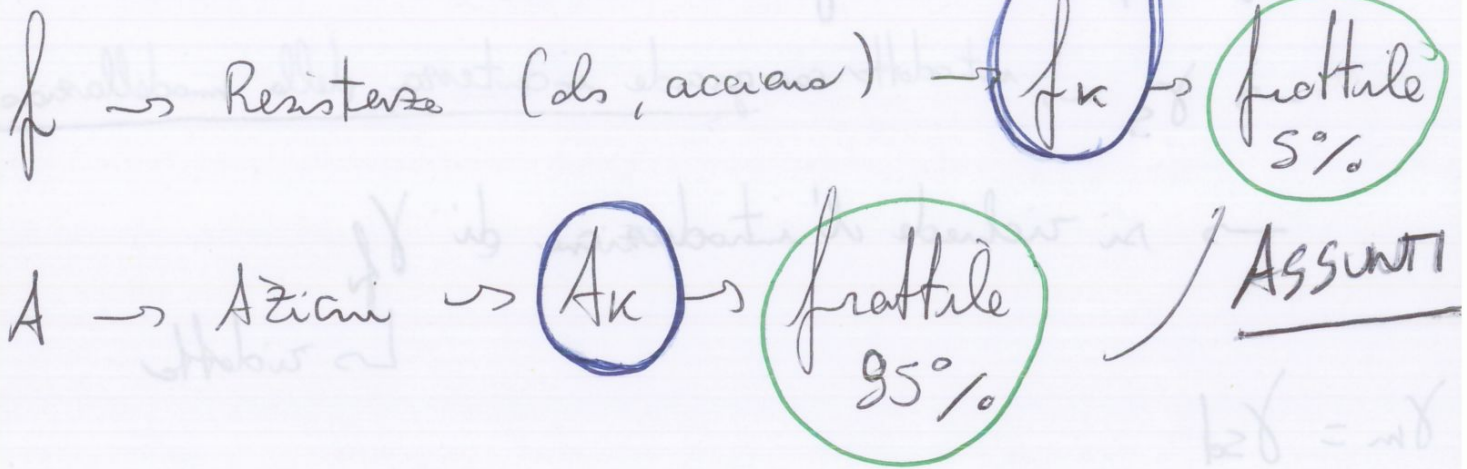 f → Resistenze (cls, acciaio) → fk → frattile 5%
A → Azioni → Ak → frattile 95% / ASSUNTI